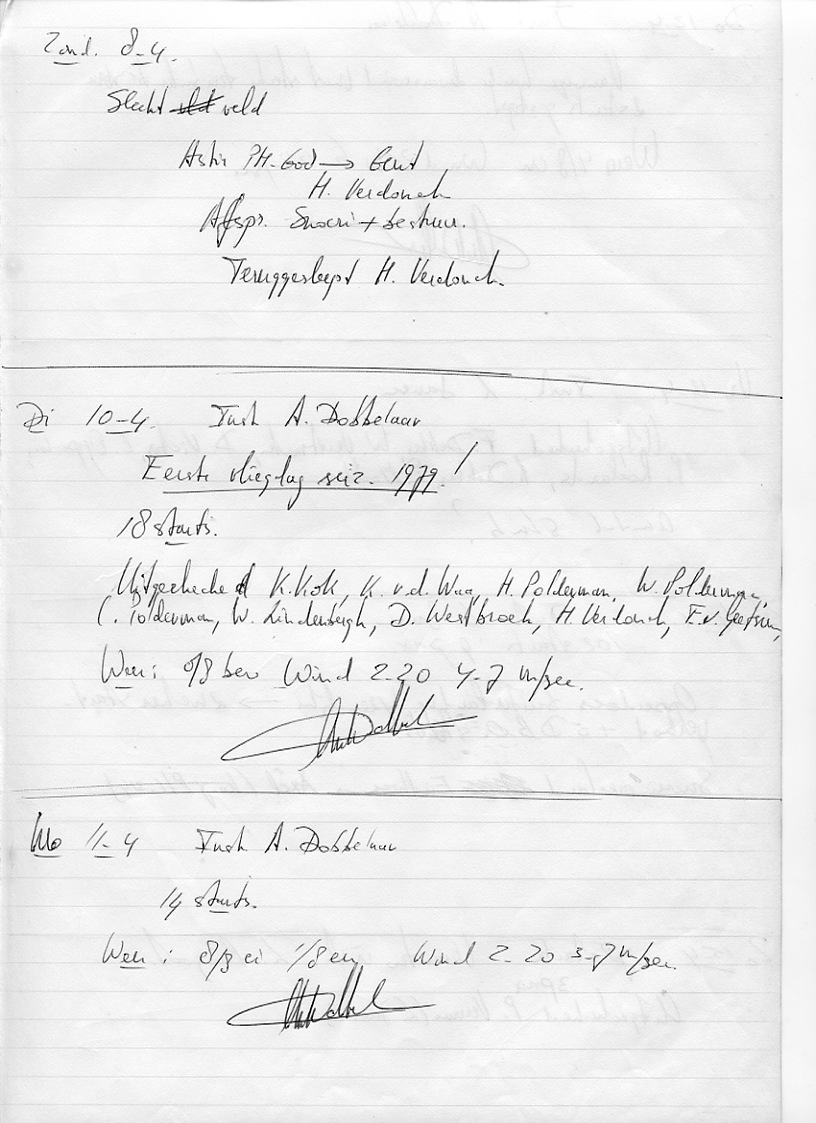 Zond. 8-4.
Slecht veld
Astir PH-GOD → Gent
H. Verdonck
Afspr. Snoeri + bestuur.
Teruggesleept H. Verdonck.
Di 10-4. Instr A. Dobbelaar
Eerste vliegdag seiz. 1979!
18 starts.
Uitgecheckt K. Kok, K. v.d. Waa, H. Polderman, W. Polderman,
C. Polderman, W. Lindenbergh, D. Westbroek, H. Verdonck,
Weer: 0/8 bew Wind 220 4-7 m/sec.
Wo 11-4 Instr A. Dobbelaar
14 starts.
Weer: 8/8 ci 1/8 en Wind 220 3-7 m/sec.